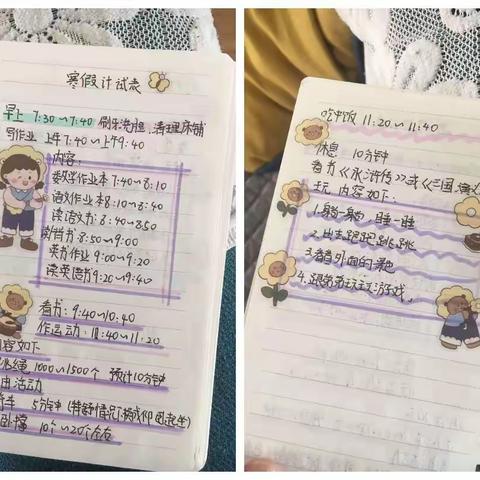 寒假计试表
早上 7:30~7:40 刷牙洗脸,清理床铺
写作业 上午7:40~上午9:40
内容:
数学作业本 7:40~8:10
语文作业本8:10~8:40
读语文书:8:40~8:50
8:50~9:00
英书作业 9:00~9:20
读英语书9:20~9:40
看书:9:40~10:40
作运动:11:40~11:20
内容如下
跳绳 1000~1500个 预计10分钟
由活动
5分钟(特舒情况,换成仰卧起坐)
卧撑 10个~20个左右
吃中饭 11:20~11:40
休息 10分钟
看书《水浒传》或《三国演义
玩 内容如下:
1.躺一躺,睡一睡
2.出去跑跑跳跳
3.看看外面的景色
4.跟弟弟玩玩游戏。